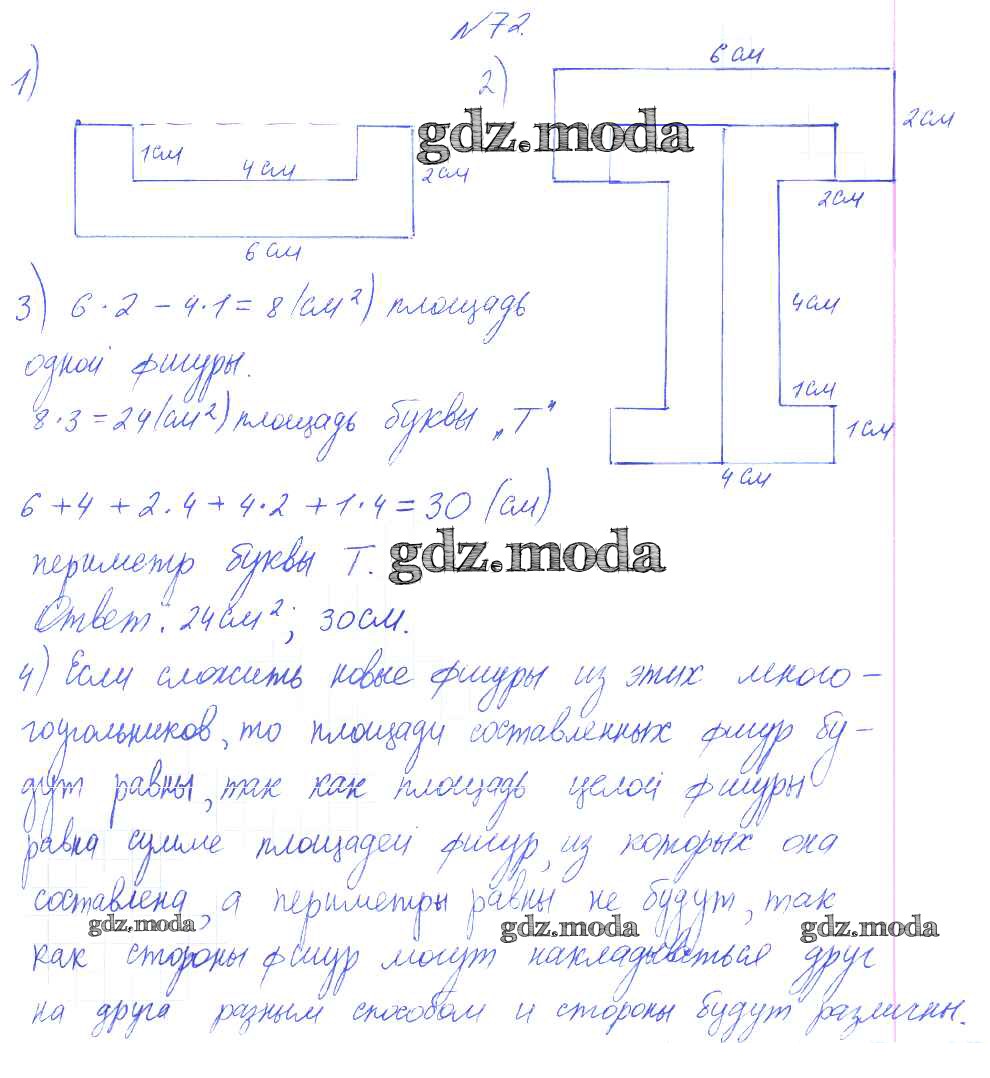 №72.
1)
2)
6 см
2см
1см
4 см
2см
6 см
2см
4см
1см
1см
4 см
gdz.moda
3) 6·2 – 4·1 = 8 (см²) площадь
одной фигуры.
8·3 = 24 (см²) площадь буквы „Т"
6 + 4 + 2·4 + 4·2 + 1·4 = 30 (см)
периметр буквы Т.
gdz.moda
Ответ: 24см²; 30см.
4) Если сложить новые фигуры из этих много-
гоугольников, то площади составленных фигур бу-
дут равны, так как площадь целой фигуры
равна сумме площадей фигур, из которых она
составлена, а периметры равны не будут, так
gdz.moda
gdz.moda
gdz.moda
как стороны фигур могут накладываться друг
на друга разным способом и стороны будут различны.